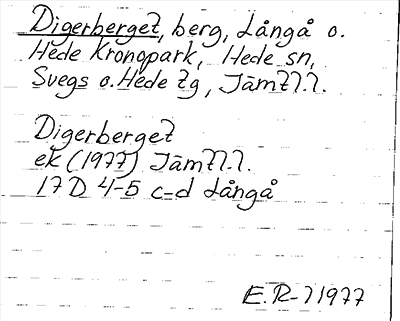 Digerberget, berg, Långå o.
Hede Kronopark, Hede sn,
Svegs o. Hede tg, Jämtl.l.
Digerberget
ek (1977) Jämtl.l.
17 D 4-5 c-d Långå
E.R-l 1977